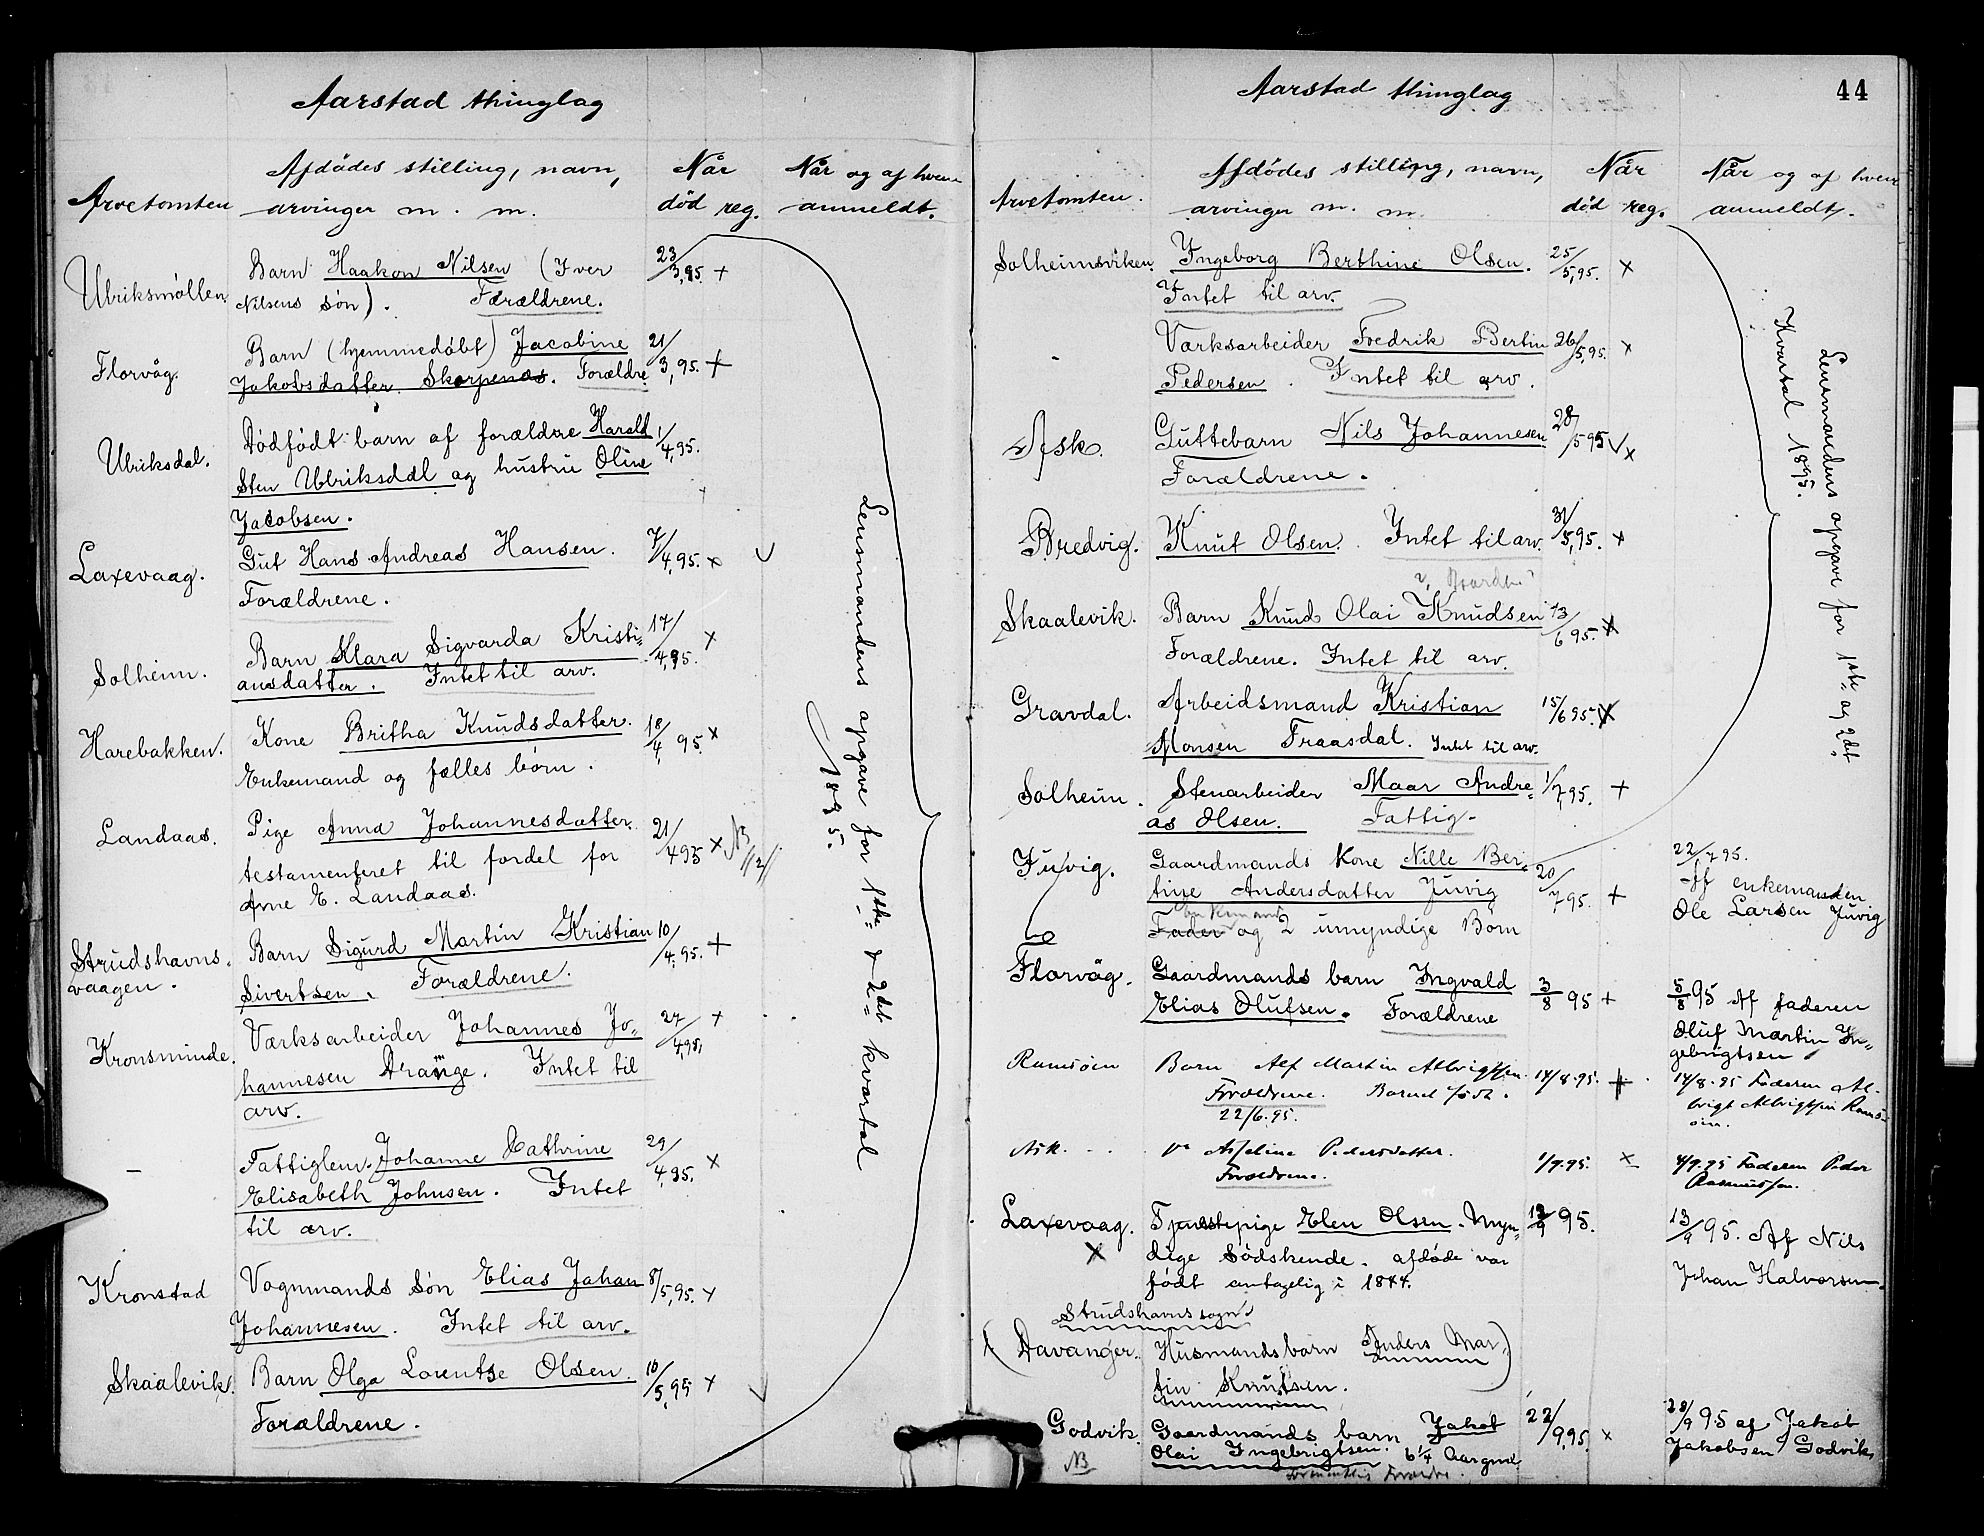 Aarstad thinglag
Arvetomten
Afdødes stilling, navn,
arvinger m. m.
Når
død reg.
Når og af hvem
anmeldt.
Ulriksmøllen.
Barn Haakon Nilsen (Iver
Nilsens søn). Forældrene.
23/3,95. +
Florvåg.
Barn (hjemmedøbt) Jacobine
Jakobsdatter Skarpenæs. Forældre
21/3,95. +
Ulriksdal.
Dødfødt barn af forældre Harald
Sten Ulriksdal og hustru Oline
Jacobsen.
1/4,95.
Laxevaag.
Gut Hans Andreas Hansen.
Forældrene.
7/4,95. x
Solheim.
Barn Klara Sigvarda Kristi-
ansdatter. Intet til arv.
17/4,95. x
Harebakken.
Kone Britha Knudsdatter.
Enkemand og fælles børn.
18/4,95. x
Landaas.
Pige Anna Johannesdatter.
testamenteret til fordel for
Arne E. Landaas.
21/4 95 x
Strudshavns-
vaagen.
Barn Sigurd Martin Kristian
Sivertsen. Forældrene.
10/4,95. +
Kronsminde.
Værksarbeider Johannes Jo-
hannesen Drange. Intet til
arv.
27/4,95, +
–
Fattiglem. Johanne Cathrine
Elisabeth Johnsen. Intet
til arv.
29/4,95. x
Kronstad
Vognmands søn Elias Johan
Johannesen. Intet til arv.
8/5,95. x
Skaalevik.
Barn Olga Lorentse Olsen.
Forældrene.
10/5,95 x
Lensmandens opgave for 1ste & 2det kvartal
1895.
Aarstad thinglag
44
Arvetomten.
Afdødes stilling, navn,
arvinger m. m.
Når
død reg.
Når og af hvem
anmeldt.
Solheimsviken.
Ingeborg Berthine Olsen.
Intet til arv.
25/5,95. x
-
Værksarbeider Fredrik Bertin
Pedersen. Intet til arv.
26/5,95. x
Ask.
Guttebarn Nils Johannesen
Forældrene.
28/5 95 x
Bredvig.
Knut Olsen. Intet til arv.
31/5,95. x
Skaalevik.
Barn Knud Olai Knudsen
Forældrene. Intet til arv.
13/6 95. x
Gravdal.
Arbeidsmand Kristian
Monsen Fraasdal. Intet til arv.
15/6 95. x
Solheim.
Stenarbeider Maar Andre-
as Olsen. Fattig-
1/7 95. +
Lensmandens opgave for 1ste og 2det
Kvartal 1895.
Juvig.
Gaardmands kone Nille Ber-
tine Andersdatter Juvig
Enkemand
Fader og 2 umyndige Børn
20/7 95. +
22/7 95.
Af enkemanden
Ole Larsen Juvig
Florvåg.
Gaardmands barn Ingvald
Elias Olufsen. Forældrene
3/8 95 +
5/8 95 Af faderen
Oluf Martin In-
gebrigtsen
Ramsøen
Barn Alf Martin Albrigtsen.
Forældrene. Barnet født.
22/6.95.
14/8.95. +
14/8.95 Faderen Al-
brigt Albrigtsen Rams-
øen.
Ask.
Pedersdatter.
Forældrene.
1/9.95. x
4/9.95 Faderen Peder
Rasmussen.
Laxevaag.
x
Tjenestepige Elen Olsen. Myn-
dige Sødskende. afdøde var
født antagelig i 1844.
12/9 95.
13/9 95. Af Nils
Johan Halvorsen.
Strudshavns sogn
(Davanger. Husmandsbarn Anders Mar-)
tin Knutsen.
Godvik.
NB
Gaardmands barn Jakob
Olai Ingebrigtsen. 6 1/4 Aar gml
22/9,95. x
28/9 95 af Jakob
Jakobsen Godvik